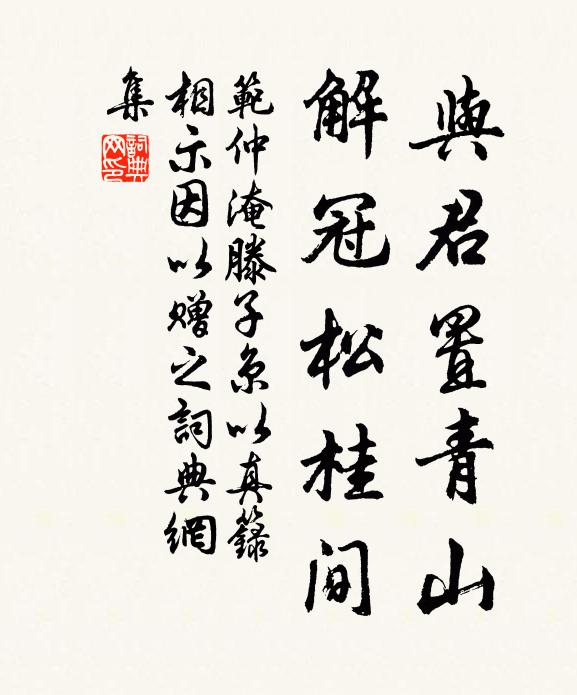 與君置青山
解冠松桂间
範仲淹滕子京以真籙
相示因以贈之詞典網
集
詞典網印